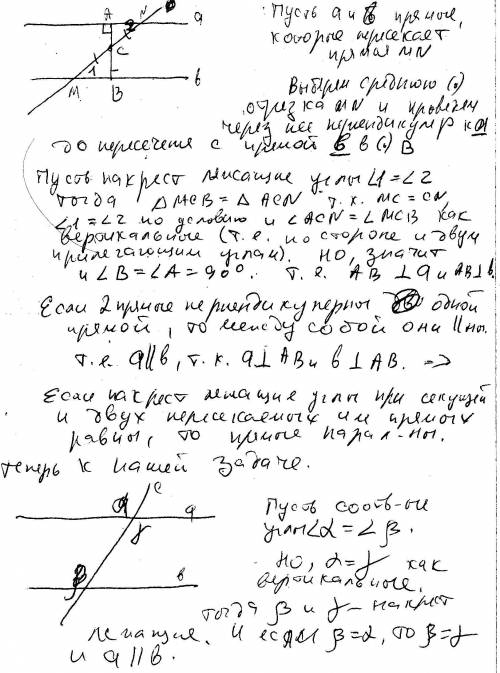 A N a
2
C
1
M B b
Пусть а и b прямые,
которые пересекает
прямая MN
Выберем среднюю (.)
отрезка MN и проведем
через нее перпендикуляр к a
до пересечения с прямой b в (.) B
Пусть накрест лежащие углы ∠1=∠2
тогда △MCB = △ACN т.к. MC = CN,
∠1=∠2 по условию и ∠ACN=∠MCB как
вертикальные (т.е. по стороне и двум
прилегающим углам). Но, значит
и ∠B=∠A=90°. т.е. AB ⊥ a и AB ⊥ b.
Если 2 прямые перпендикулярны одной
прямой, то между собой они ||ны.
т.е. a||b, т.к. a⊥AB и b⊥AB. =>
Если накрест лежащие углы при секущей
и двух пересекаемых им прямых
равны, то прямые парал-ны.
теперь к нашей задаче.
c
α a
γ
β b
Пусть соотв-ые
углы ∠α = ∠β.
Но, α=γ как
вертикальные,
тогда β и γ - накрест
лежащие. И если β=α, то β=γ
и a||b.